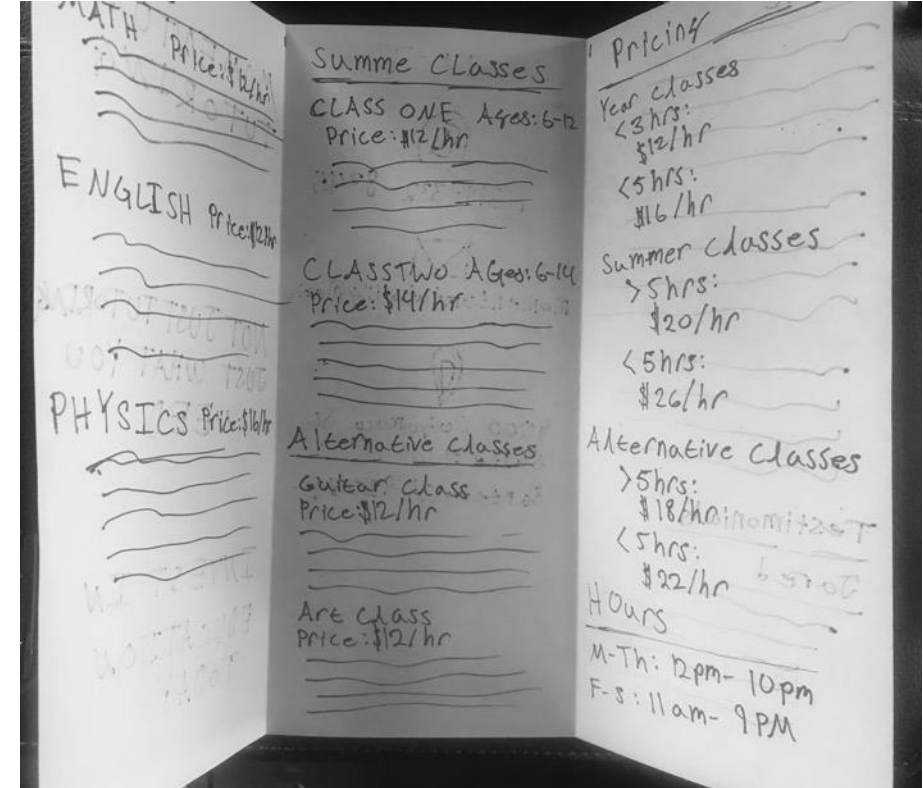 MATH
Price: $12/hr
ENGLISH Price: $12/hr
PHYSICS Price: $16/hr
Summe CLasses
CLASS ONE Ages: 6-12
Price: $12/hr
CLASS TWO AGes: 6-14
Price: $14/hr
Alternative Classes
Guitar Class
Price: $12/hr
Art Class
Price: $12/hr
Pricing
Year Classes
<3hrs:
$12/hr
<5hrs:
$16/hr
Summer Classes
>5hrs:
$20/hr
<5hrs:
$26/hr
Alternative Classes
>5hrs:
$18/hr
<5hrs:
$22/hr
Hours
M-Th: 12pm-10pm
F-S: 11am-9PM
NOT JUST TUTORIAL
JUST WHAT YOU
Testimonials
Jared
INVEST IN
EDUCATION
TODAY